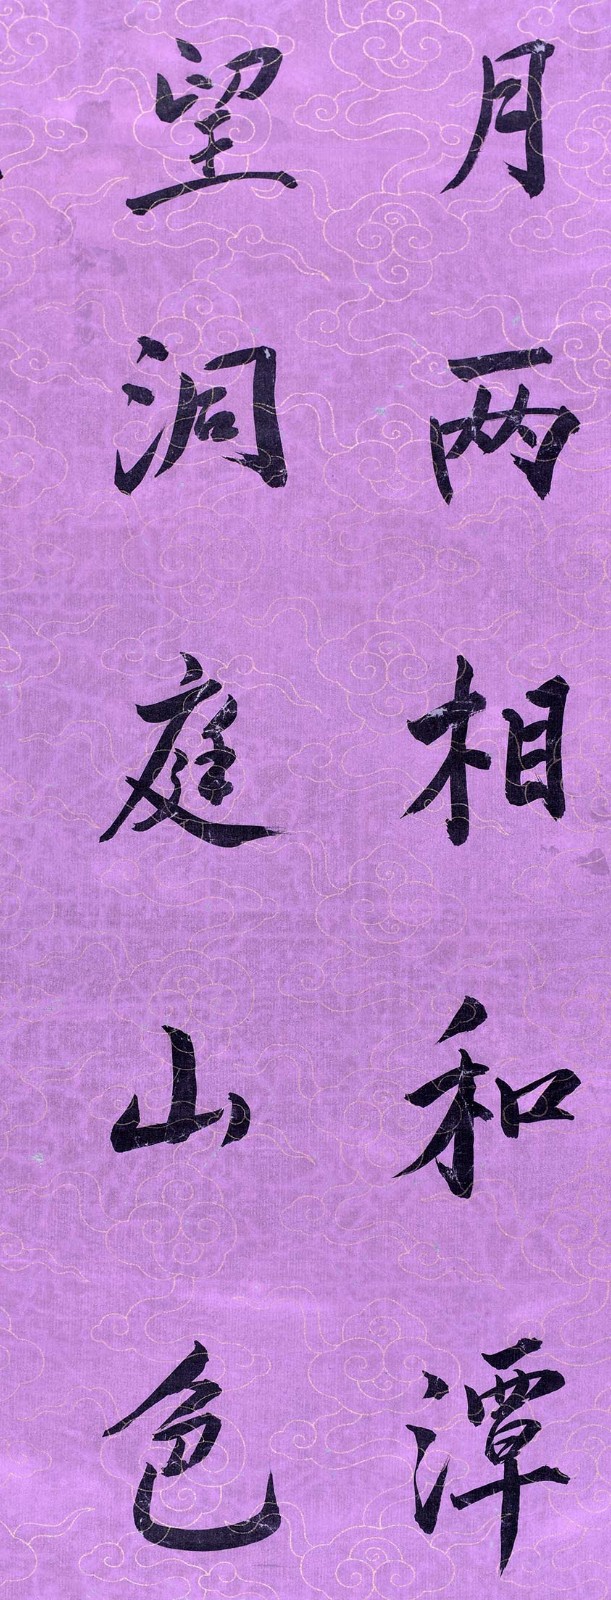 月两相和潭
望洞庭山色